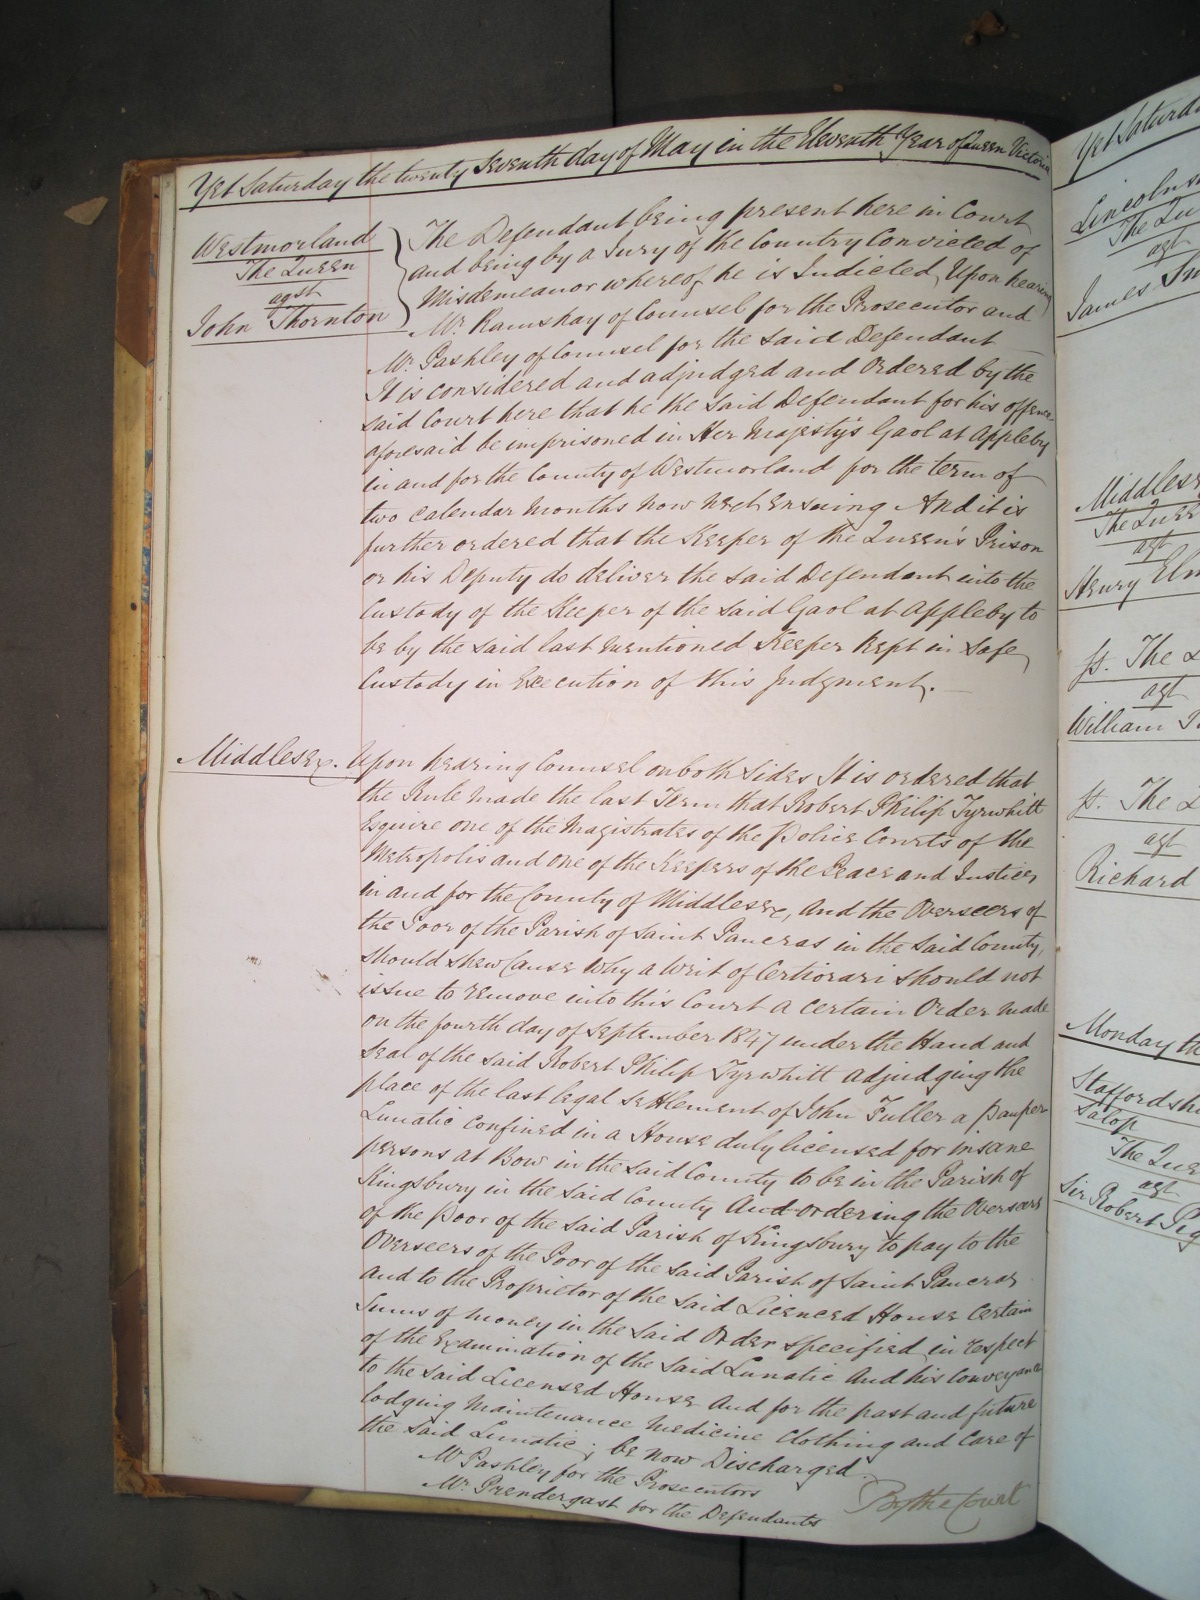 Yet Saturday the twenty seventh day of May in the Eleventh Year of Queen Victoria
Westmorland
The Queen
agst
John Thornton
The Defendant being present here in Court
and being by a Jury of the Country Convicted of
Misdemeanor whereof he is Indicted, Upon hearing
Mr. Ramshay of Counsel for the Prosecutor and
Mr. Pashley of Counsel for the said Defendant
It is considered and adjudged and Ordered by the
said Court here that he the said Defendant for his offence
aforesaid be imprisoned in Her Majesty's Gaol at Appleby
in and for the County of Westmorland for the term of
two calendar months now next ensuing And it is
further ordered that the Keeper of the Queen's Prison
or his Deputy do deliver the said Defendant into the
Custody of the Keeper of the said Gaol at Appleby to
be by the said last mentioned Keeper kept in safe
Custody in Execution of this Judgment.
Middlesex. Upon hearing Counsel on both sides It is ordered that
the Rule made the last Term that Robert Philip Tyrwhitt
Esquire one of the Magistrates of the Police Courts of the
Metropolis and one of the Keepers of the Peace and Justices
in and for the County of Middlesex, and the Overseers of
the Poor of the Parish of Saint Pancras in the said County,
should shew Cause why a Writ of Certiorari should not
issue to remove into this Court a certain Order made
on the fourth day of September 1847 under the Hand and
seal of the said Robert Philip Tyrwhitt adjudging the
place of the last legal settlement of John Fuller a pauper
Lunatic confined in a House duly licensed for insane
persons at Bow in the said County to be in the Parish of
Kingsbury in the said County And ordering the Overseers
of the Poor of the said Parish of Kingsbury to pay to the
Overseers of the Poor of the said Parish of Saint Pancras
and to the Proprietor of the said Licensed House certain
sums of money in the said Order specified in respect
of the Examination of the said Lunatic And his Conveyance
to the said Licensed House And for the past and future
lodging Maintenance Medicine Clothing and Care of
the said Lunatic; be now Discharged.
Mr Pashley for the Prosecutors
Mr. Prendergast for the Defendants
By the Court
Yet Saturda
Lincolnsh
The Qu
agt
James Sm
Middlese
The Quee
agt
Henry Elm
ss. The
agt
William
ss. The
agt
Richard
Monday th
Staffordshi
Salop
The Quee
agt
Sir Robert Pig